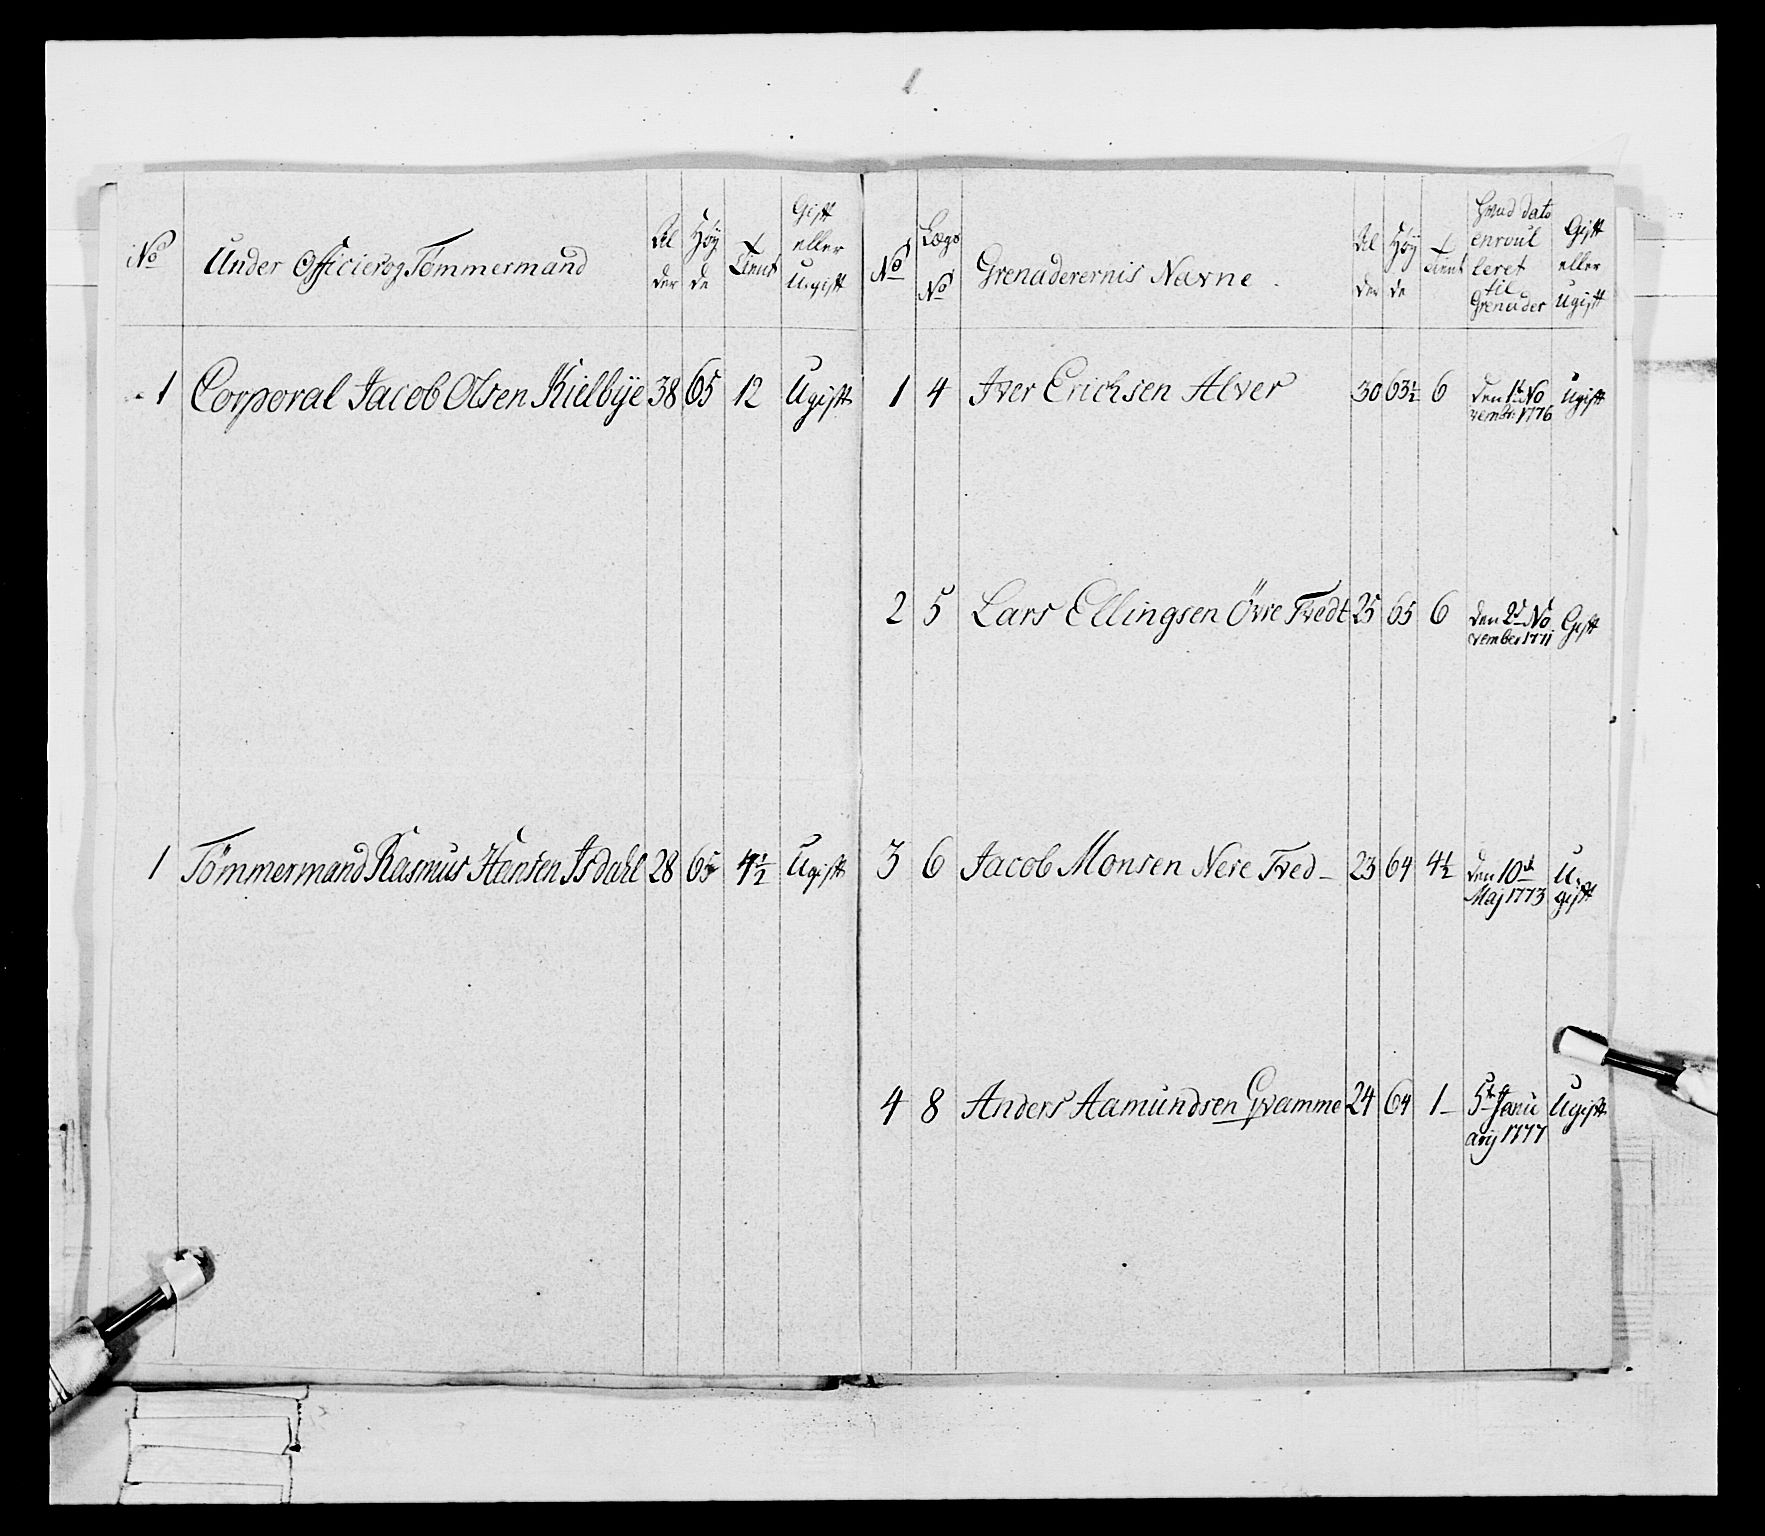 1
No Under Officier og Tömmermand Al der Höy de Tient Gift eller Ugift
1 Corporal Jacob Olsen Kielbye 38 65 12 Ugift
1 Tömmermand Rasmus Hansen Isdahl 28 65 4½ Ugift
No Lægs No Grenaderernis Navne. Al der Höy de Tient Hvad dato enroul leret til Grenader Gift eller Ugift
1 4 Iver Erichsen Alver 30 63½ 6 den 1t No Ugift
vembr: 1776
2 5 Lars Ellingsen Övre Tvedt 25 65 6 den 2d No Gift
vember 1771
3 6 Jacob Monsen Nere Tved 23 64 4½ den 10de U:
Maj 1773 gift
4 8 Anders Aamundsen Qvamme 24 64 1 5te Janu Ugift
arij 1777